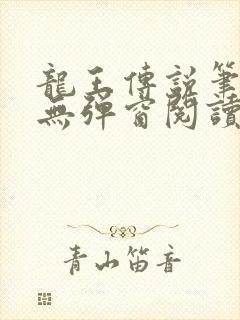 龍王傳說筆
無彈窗閱讀
青山笛音